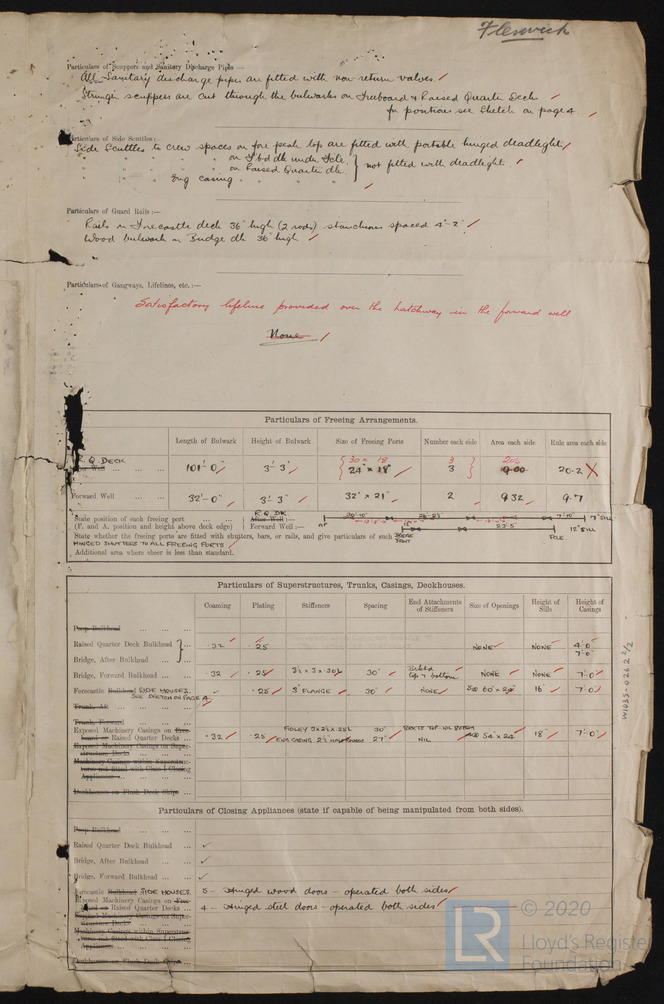 Fleswick
Particulars of Scuppers and Sanitary Discharge Pipes —
All Sanitary discharge pipes are fitted with non return valves.
scuppers are cut through the bulwarks on Freeboard & Raised Quarter Deck
for positions see Sketch on page 4
Particulars of Side Scuttles :—
Side Scuttles to crew spaces on fore peak top are fitted with portable hinged deadlights
" " " on Fbd dk under Fcle.
" " " on Raised Quarter dk } not fitted with deadlight.
" " Eng casing " "
Particulars of Guard Rails :—
Rails on Forecastle deck 36" high (2 rods) stanchions spaced 4'-2"
Wood bulwark on Bridge dk 36" high
Particulars of Gangways, Lifelines, etc. :—
Satisfactory lifeline provided over the hatchway in the forward well
None
Particulars of Freeing Arrangements.
Length of Bulwark Height of Bulwark Size of Freeing Ports Number each side Area each side Rule area each side
30 x 18 3
Q DECK 101'-0" 3'-3" 24" x 18" 3 20.2
Forward Well 32'-0" 3'-3" 32" x 21" 2 9.32 9.7
State position of each freeing port R.Q.DK After Well :—
(F. and A. position and height above deck edge) Forward Well :— 12" SILL
State whether the freeing ports are fitted with shutters, bars, or rails, and give particulars of such
HINGED SHUTTERS TO ALL FREEING PORTS
Additional area where sheer is less than standard.
Particulars of Superstructures, Trunks, Casings, Deckhouses.
Coaming Plating Stiffeners Spacing End Attachments of Stiffeners Size of Openings Height of Sills Height of Casings
Poop Bulkhead
Raised Quarter Deck Bulkhead .32 .25 NONE NONE 4'-0"
Bridge, After Bulkhead 7'-0"
Bridge, Forward Bulkhead .32 .25 30" top & bottom NONE NONE 7'-0"
Forecastle Bulkhead SIDE HOUSES .25 3" FLANGE 30" NONE 18" 7'-0"
SEE SKETCH ON PAGE 4
Trunk, Aft
Trunk, Forward
Exposed Machinery Casings on Free- 30"
board or Raised Quarter Decks .32 .25 27" NIL 54" x 24" 18" 7'-0"
Exposed Machinery Casings on Super-
structure Decks
Machinery Casings within Superstruc-
tures not fitted with Class 1 Closing
Appliances
Deckhouses on Flush Deck Ships
Particulars of Closing Appliances (state if capable of being manipulated from both sides).
Poop Bulkhead
Raised Quarter Deck Bulkhead ✓
Bridge, After Bulkhead ✓
Bridge, Forward Bulkhead ✓
Forecastle Bulkhead SIDE HOUSES. 5 – Hinged wood doors – operated both sides
Exposed Machinery Casings on Free-
board or Raised Quarter Decks 4 – Hinged steel doors – operated both sides
Exposed Machinery Casings on Super-
structure Decks
Machinery Casings within Superstruc-
tures not fitted with Class 1 Closing
Appliances
Deckhouses on Flush Deck Ships
W1035-0262 2/2
LR © 2020
Lloyd's Register
Foundation